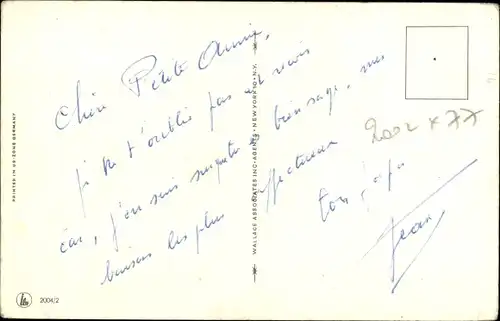 Chère Petite Annie,
je ne t'oublie pas et vois
car, j'en suis
bien sage, mes
baisers les plus affectueux
ton papa
Jean
2002 x 77
PRINTED IN US-ZONE GERMANY
WALLACE ASSOCIATES INC-AGENTS-NEW YORK 10-N.Y.
2004/2